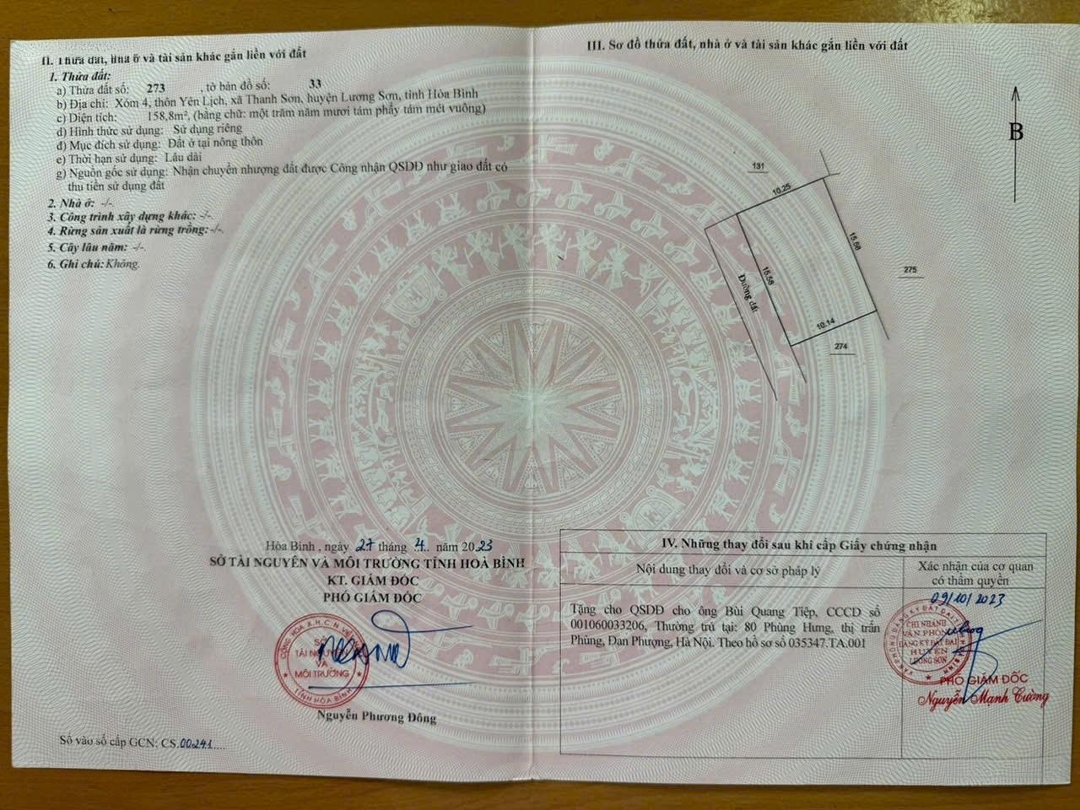 II. Thửa đất, nhà ở và tài sản khác gắn liền với đất
1. Thửa đất:
a) Thửa đất số: 273 , tờ bản đồ số: 33
b) Địa chỉ: Xóm 4, thôn Yên Lịch, xã Thanh Sơn, huyện Lương Sơn, tỉnh Hòa Bình
c) Diện tích: 158,8m², (bằng chữ: một trăm năm mươi tám phẩy tám mét vuông)
d) Hình thức sử dụng: Sử dụng riêng
đ) Mục đích sử dụng: Đất ở tại nông thôn
e) Thời hạn sử dụng: Lâu dài
g) Nguồn gốc sử dụng: Nhận chuyển nhượng đất được Công nhận QSDĐ như giao đất có
thu tiền sử dụng đất
2. Nhà ở: -/-
3. Công trình xây dựng khác: -/-
4. Rừng sản xuất là rừng trồng: -/-
5. Cây lâu năm: -/-
6. Ghi chú: Không.
Hòa Bình , ngày 27 tháng 4.. năm 2023
SỞ TÀI NGUYÊN VÀ MÔI TRƯỜNG TỈNH HOÀ BÌNH
KT. GIÁM ĐỐC
PHÓ GIÁM ĐỐC
CỘNG HÒA X.H.C.N VIỆT
SỞ
TÀI NGUYÊN
VÀ
MÔI TRƯỜNG
TỈNH HÒA BÌNH
Nguyễn Phương Đông
Số vào sổ cấp GCN: CS.00241....
III. Sơ đồ thửa đất, nhà ở và tài sản khác gắn liền với đất
B
131
10.25
15.58
15.58
275
Đường đất
10.14
274
IV. Những thay đổi sau khi cấp Giấy chứng nhận
Nội dung thay đổi và cơ sở pháp lý
Xác nhận của cơ quan
có thẩm quyền
Tặng cho QSDĐ cho ông Bùi Quang Tiệp, CCCD số
001060033206, Thường trú tại: 80 Phùng Hưng, thị trấn
Phùng, Đan Phượng, Hà Nội. Theo hồ sơ số 035347.TA.001
09/10/2023
CHI NHÁNH
VĂN PHÒNG
ĐĂNG KÝ ĐẤT ĐAI
HUYỆN
LƯƠNG SƠN
PHÓ GIÁM ĐỐC
Nguyễn Mạnh Cường